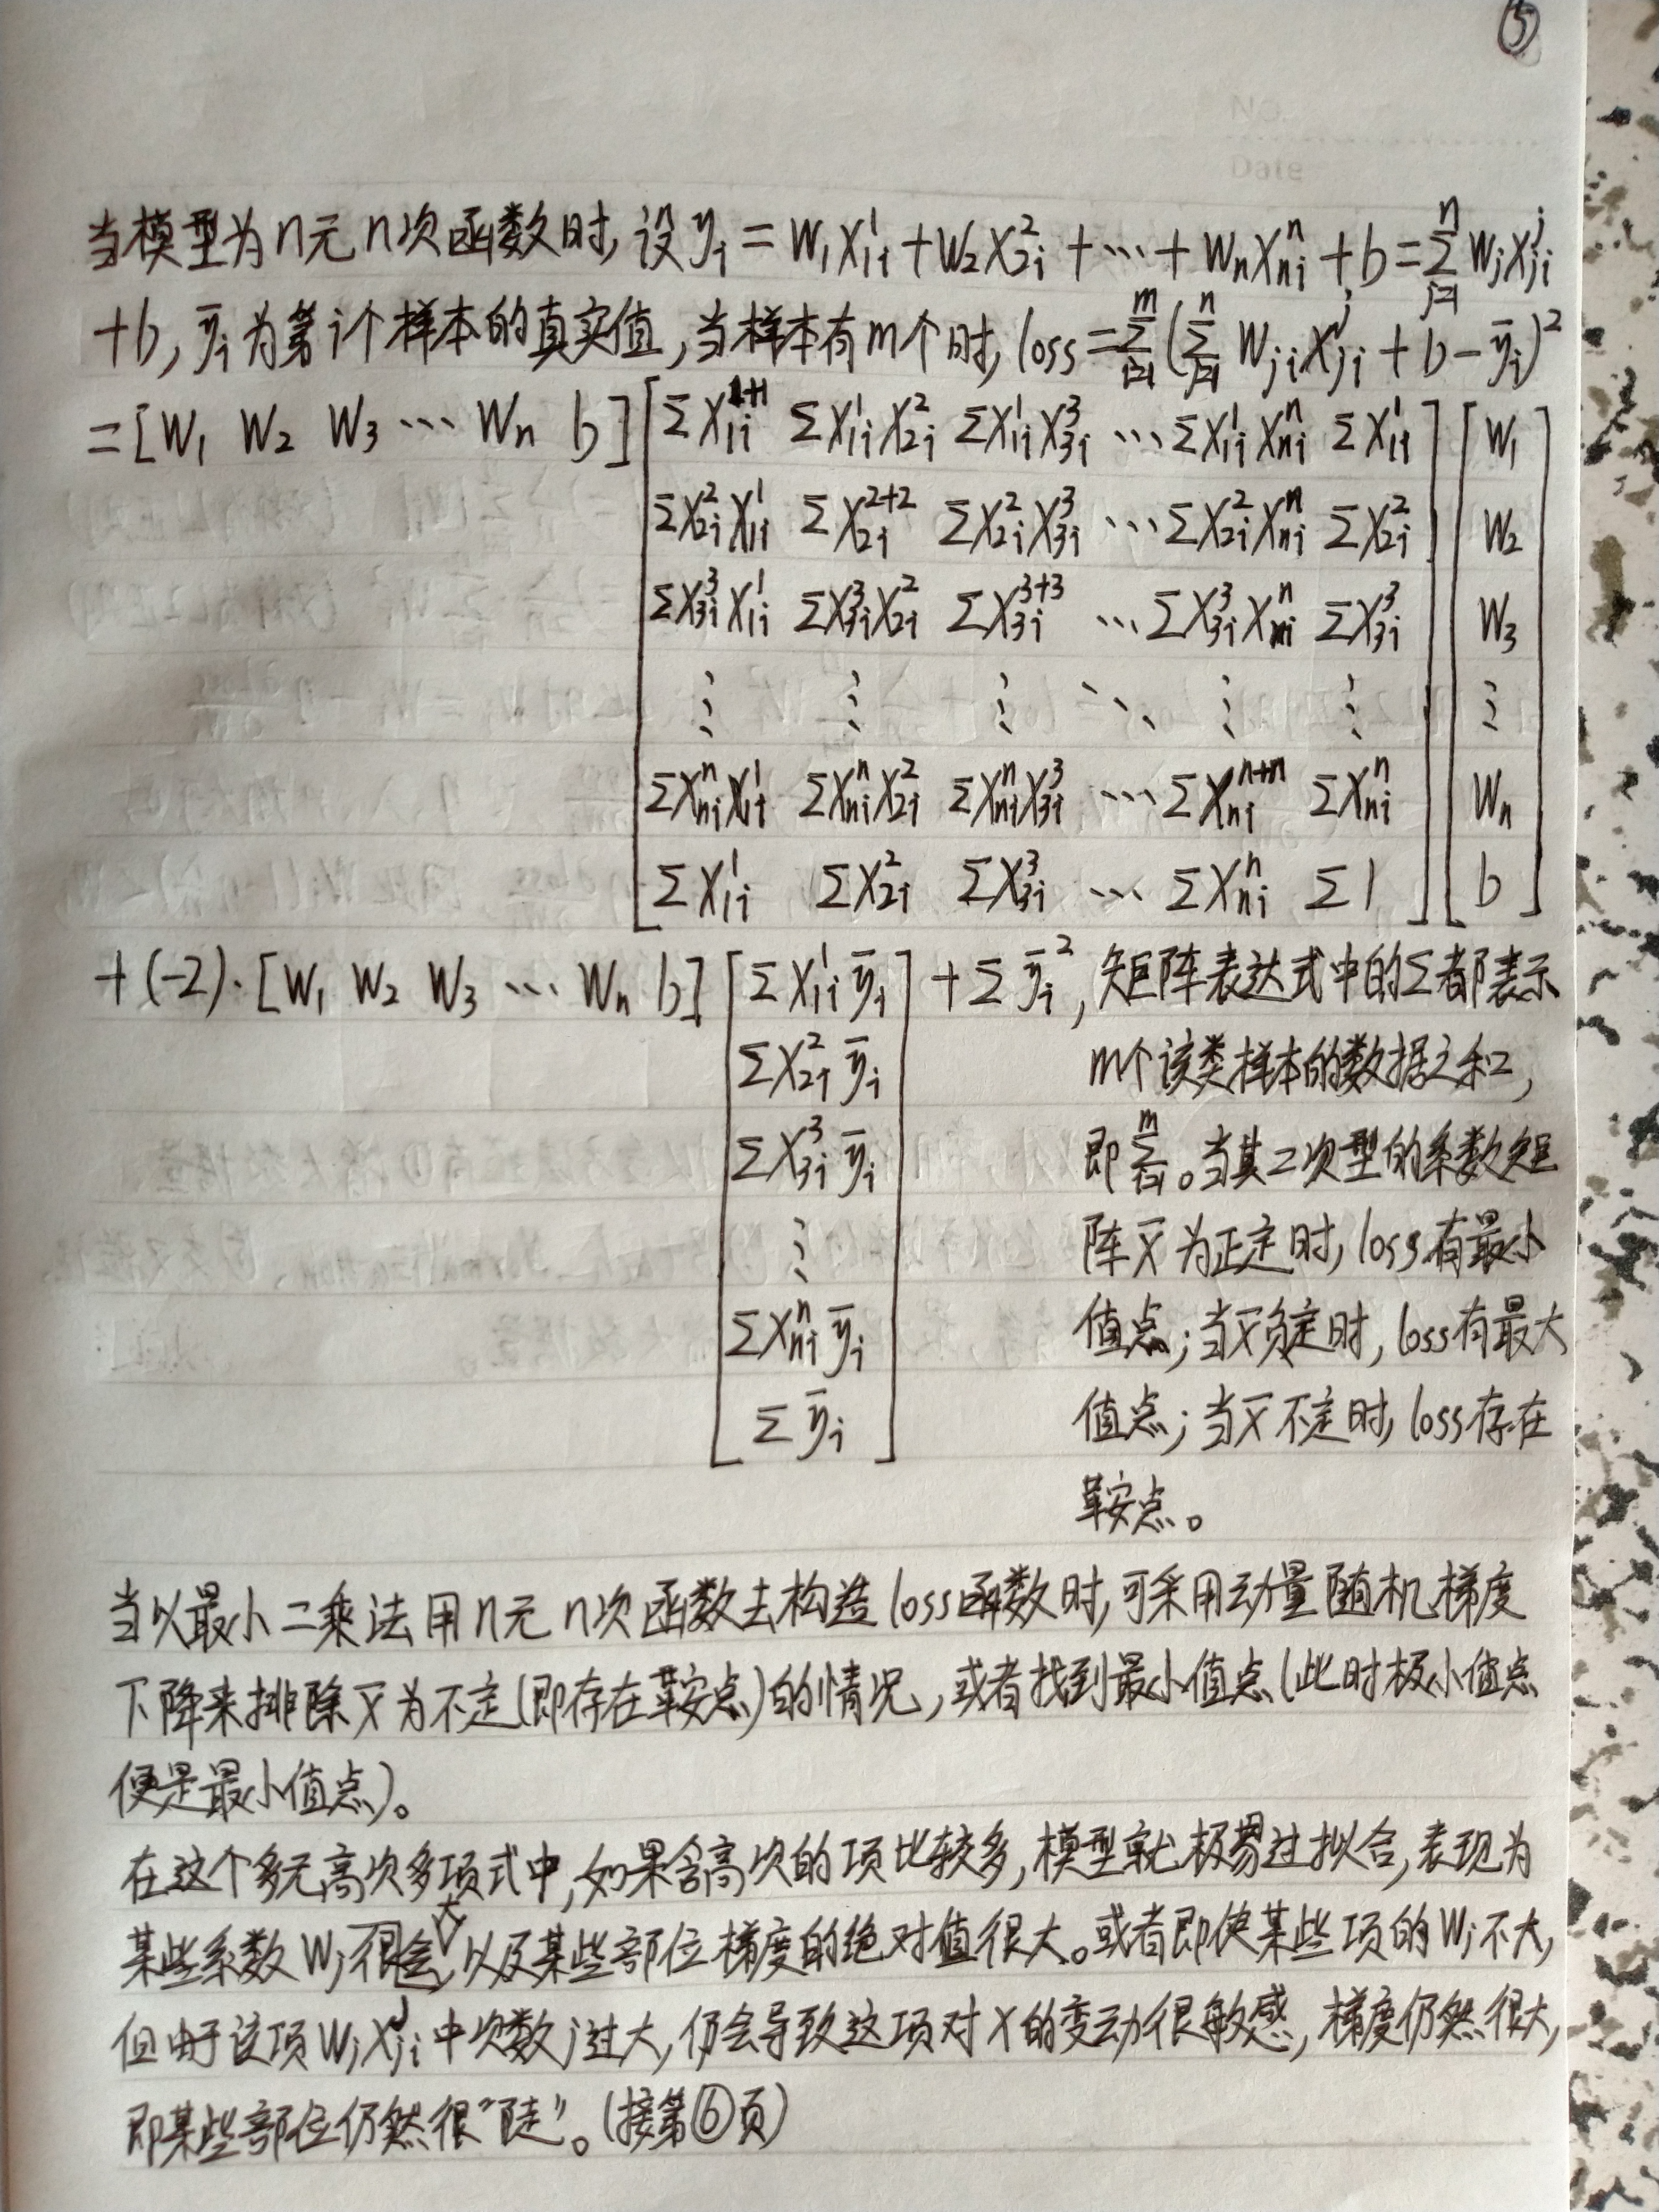 ⑤
NO.
Date
当模型为n元n次函数时,设yᵢ=W₁X₁ᵢ¹+W₂X₂ᵢ²+⋯+WₙXₙᵢⁿ+b=∑ⱼ₌₁ⁿWⱼXⱼᵢʲ
+b,ȳᵢ为第i个样本的真实值,当样本有m个时,loss=∑ᵢ₌₁ᵐ(∑ⱼ₌₁ⁿWⱼᵢXⱼᵢʲ+b-ȳᵢ)²
=[W₁ W₂ W₃ ⋯ Wₙ b][ΣX₁ᵢ¹⁺¹ ΣX₁ᵢ¹X₂ᵢ² ΣX₁ᵢ¹X₃ᵢ³ ⋯ ΣX₁ᵢ¹Xₙᵢⁿ ΣX₁ᵢ¹][W₁
ΣX₂ᵢ²X₁ᵢ¹ ΣX₂ᵢ²⁺² ΣX₂ᵢ²X₃ᵢ³ ⋯ ΣX₂ᵢ²Xₙᵢⁿ ΣX₂ᵢ² W₂
ΣX₃ᵢ³X₁ᵢ¹ ΣX₃ᵢ³X₂ᵢ² ΣX₃ᵢ³⁺³ ⋯ ΣX₃ᵢ³Xₙᵢⁿ ΣX₃ᵢ³ W₃
⋮ ⋮ ⋮ ⋱ ⋮ ⋮ ⋮
ΣXₙᵢⁿX₁ᵢ¹ ΣXₙᵢⁿX₂ᵢ² ΣXₙᵢⁿX₃ᵢ³ ⋯ ΣXₙᵢⁿ⁺ⁿ ΣXₙᵢⁿ Wₙ
ΣX₁ᵢ¹ ΣX₂ᵢ² ΣX₃ᵢ³ ⋯ ΣXₙᵢⁿ Σ1 ] b]
+(-2)·[W₁ W₂ W₃ ⋯ Wₙ b][ΣX₁ᵢ¹ȳᵢ]+Σȳᵢ²,矩阵表达式中的Σ都表示
ΣX₂ᵢ²ȳᵢ m个该类样本的数据之和,
ΣX₃ᵢ³ȳᵢ 即∑ᵢ₌₁ᵐ。当其二次型的系数矩
⋮ 阵X̄为正定时,loss有最小
ΣXₙᵢⁿȳᵢ 值点;当X̄负定时,loss有最大
Σȳᵢ 值点;当X̄不定时,loss存在
鞍点。
当以最小二乘法用n元n次函数去构造loss函数时,可采用动量随机梯度
下降来排除X̄为不定(即存在鞍点)的情况,或者找到最小值点(此时极小值点
便是最小值点)。
在这个多元高次多项式中,如果含高次的项比较多,模型就极易过拟合,表现为
某些系数Wⱼ很大,以及某些部位梯度的绝对值很大。或者即使某些项的Wⱼ不大,
但由于该项WⱼXⱼᵢʲ中次数j过大,仍会导致这项对X的变动很敏感,梯度仍然很大,
即某些部位仍然很“陡”。(接第⑥页)